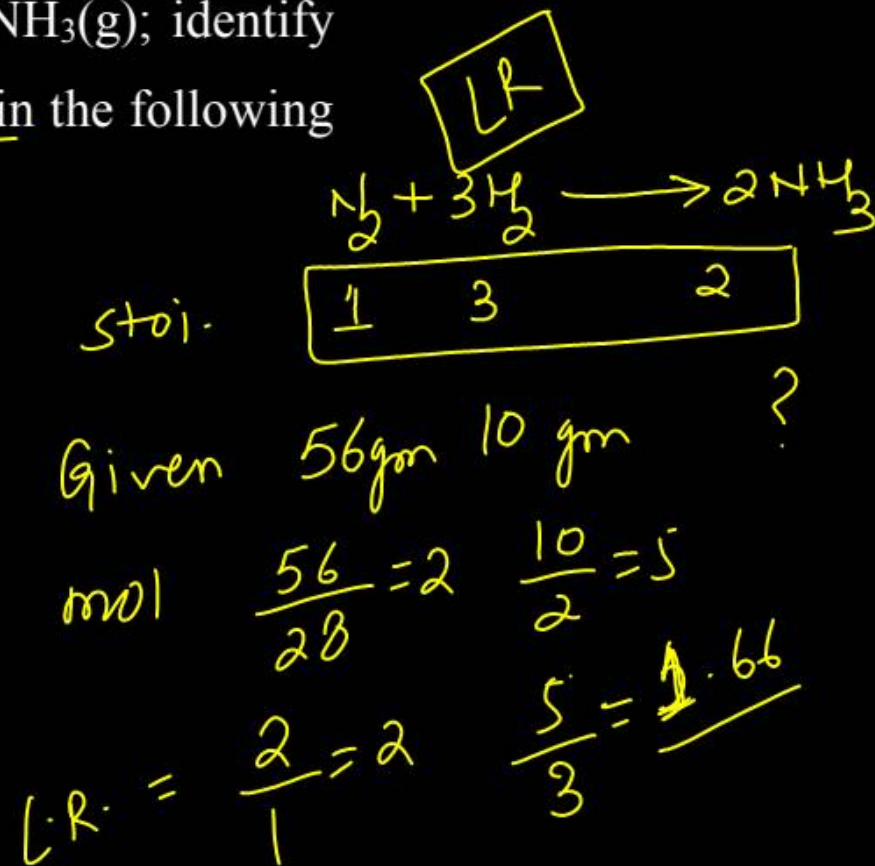 NH₃(g); identify
in the following
LR
N₂ + 3H₂ ⟶ 2NH₃
stoi. 1 3 2
Given 56gm 10 gm ?
mol 56/28 = 2 10/2 = 5
L.R. = 2/1 = 2 5/3 = 1.66